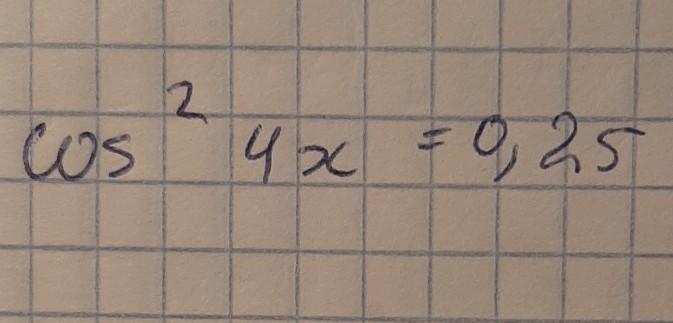 cos² 4x = 0,25